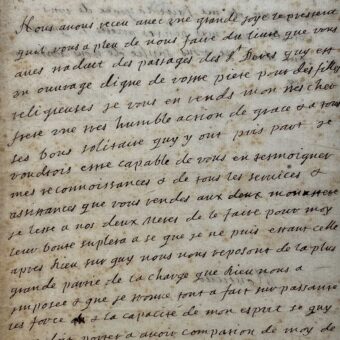 Nous avons receu avec une grande joye le present
quil vous a pleu de nous faire du livre que vous
aves traduit des passages des Sts Peres quy est
un ouvrage digne de vostre piete pour des filles
religieuses je vous en rends mon tres cher
frere une tres humble action de grace & a tous
ses bons solitaire quy y ont pris part je
voudrois estre capable de vous en tesmoigner
mes reconnoissances & de tous les services &
assistances que vous rendes aux deux monastere
je lesse a nos deux meres de le faire pour moy
leur bonte suplera a se que je ne puis estant celle
apres dieu sur quy nous nous reposons de la plus
grande partie de la charge que dieu nous a
imposee & que je trouve tout a fait surpassante
les force & la capacite de mon esprit se quy
a avoir compassion de moy de